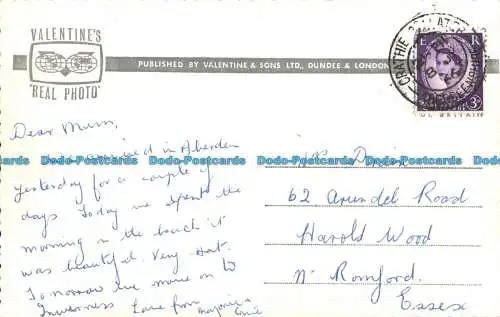 VALENTINE'S
"REAL PHOTO"
PUBLISHED BY VALENTINE & SONS LTD., DUNDEE & LONDON
CRATHIE BALLATER
E R
3D
Dear Mum,
arrived in Aberdeen
Yesterday for a couple of
days. Today we spent the
morning on the beach it
was beautiful. Very Hot.
Tomorrow we move on to
Inverness Love from
Mrs
62 Arundel Road
Harold Wood
Nr Romford.
Essex
Postcards Postcards Postcards Postcards
www.dodo-postcards.com